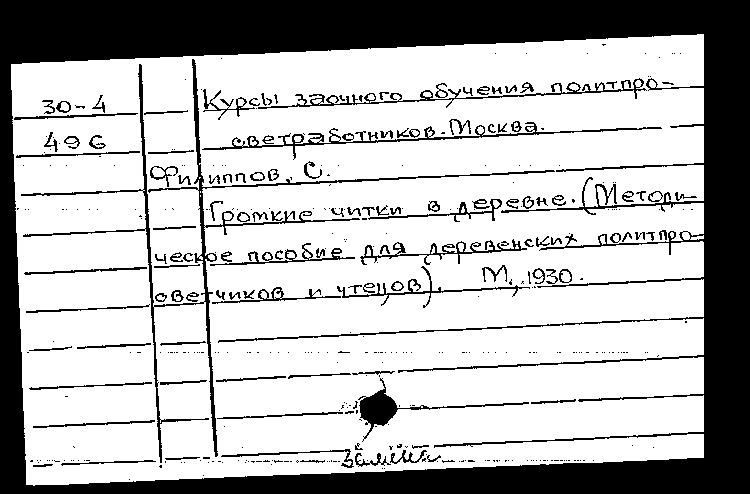 30-4
496
Курсы заочного обучения политпро-
светработников. Москва.
Филиппов, С.
Громкие читки в деревне. (Методи-
ческое пособие для деревенских политпро-
светчиков и чтецов). М., 1930.
Замена